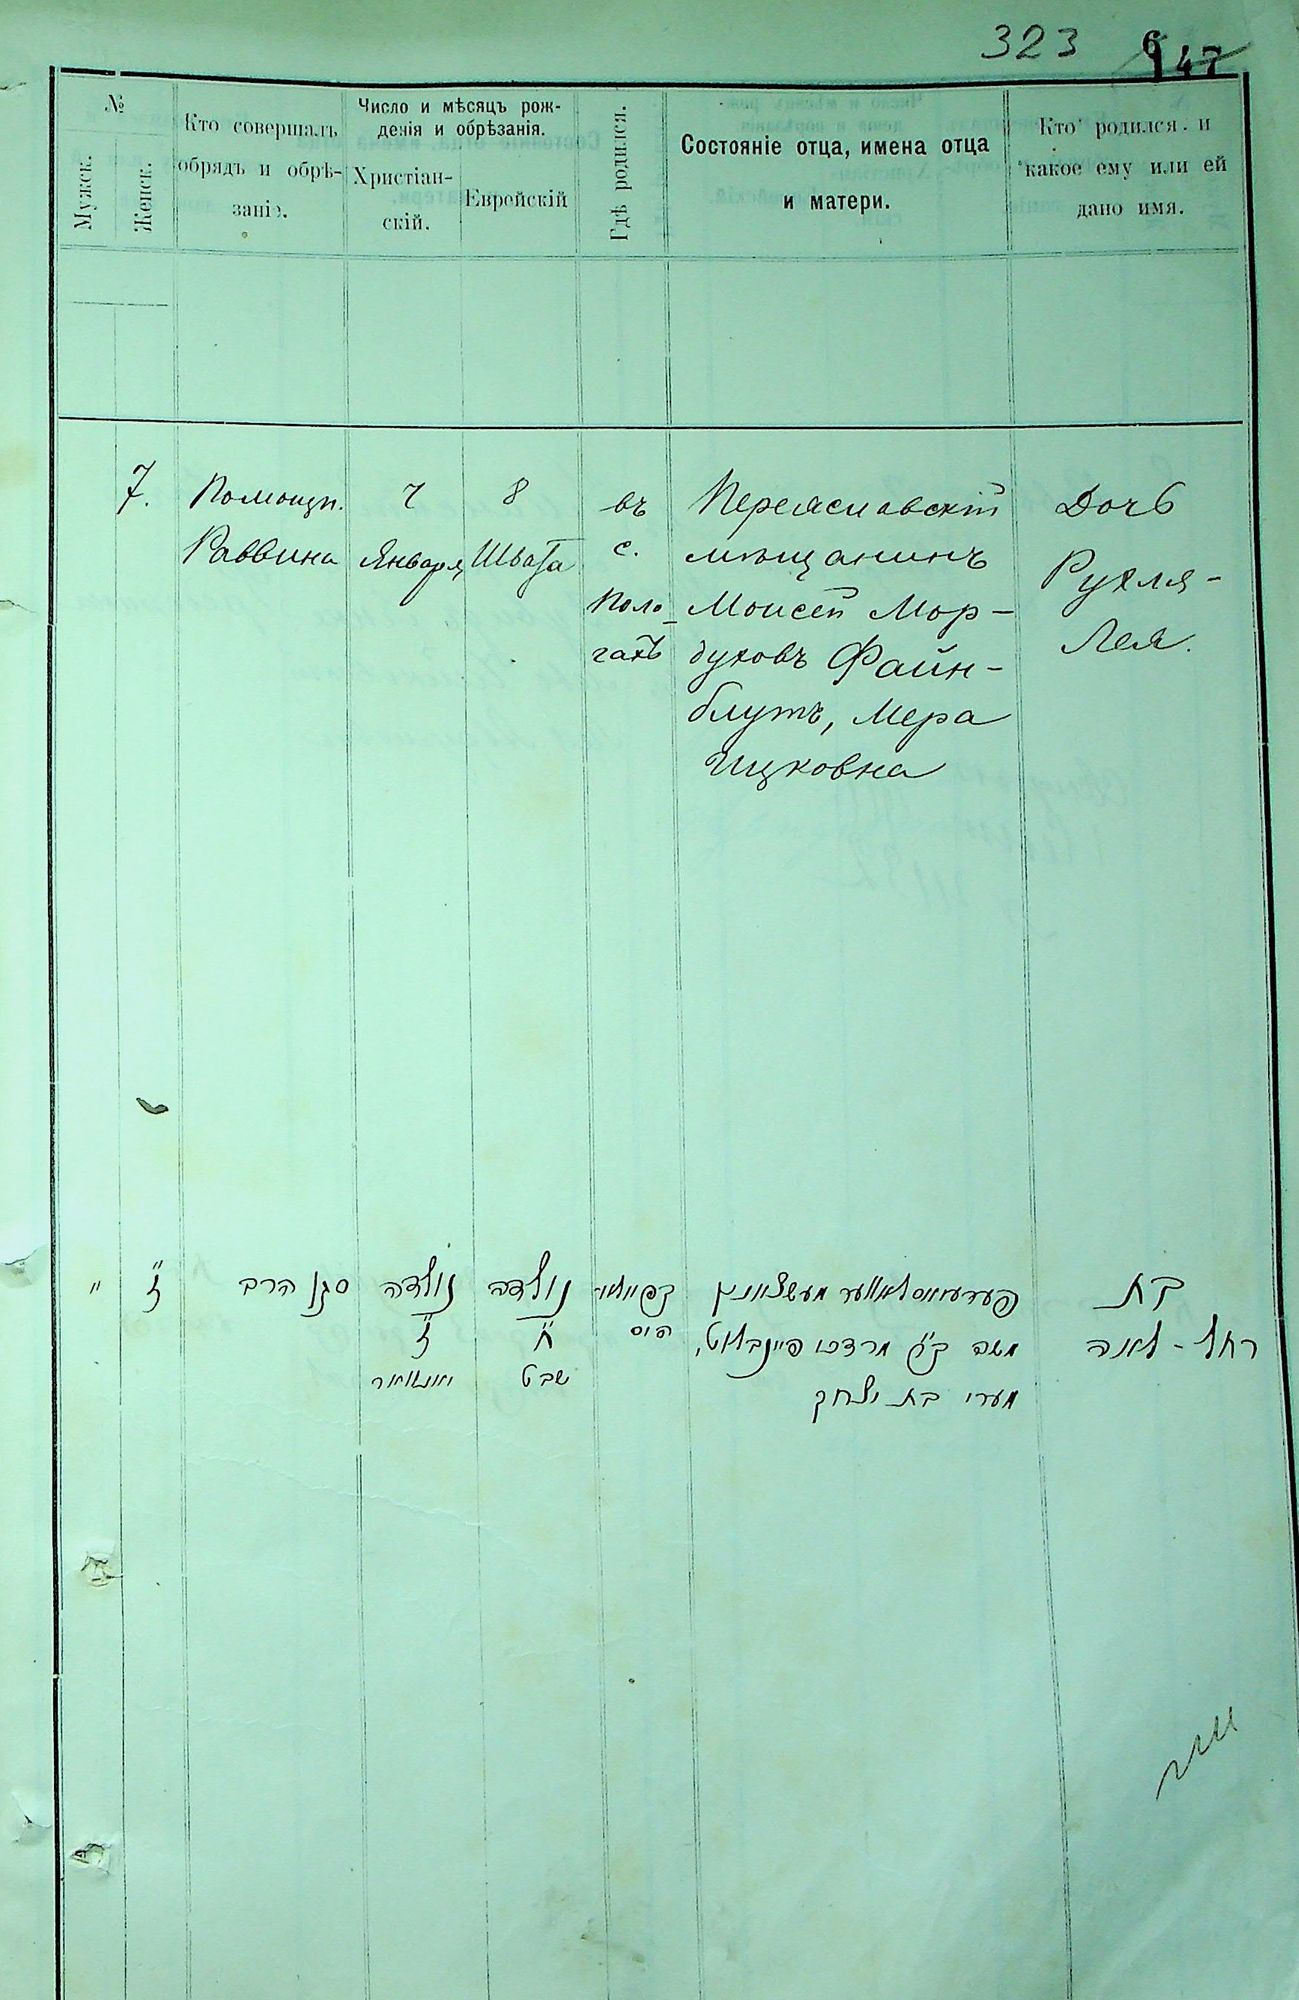 323 6
147
№
Мужск.
Женск.
Кто совершалъ
обрядъ и обрѣ-
заніе.
Число и мѣсяцъ рож-
денія и обрѣзанія.
Христіан-
скій.
Еврейскій
Гдѣ родился.
Состояніе отца, имена отца
и матери.
Кто родился и
какое ему или ей
дано имя.
7.
Помощн.
Раввина
7
Января
8
Швата
въ
с.
Поло-
гахъ
Переяславскій
мѣщанинъ
Моисей Мор-
духовъ Файн-
блутъ, Мера
Ицковна
Дочь
Рухля-
Лея.
"
ז"
סגן הרב
נולדה
ז"
יאנואר
נולדה
ח"
שבט
פערעיאסלאווער מעשצאנין
משה ב"ר מרדכי פיינבלוט,
מערי בת יצחק
בת
רחל - לאה